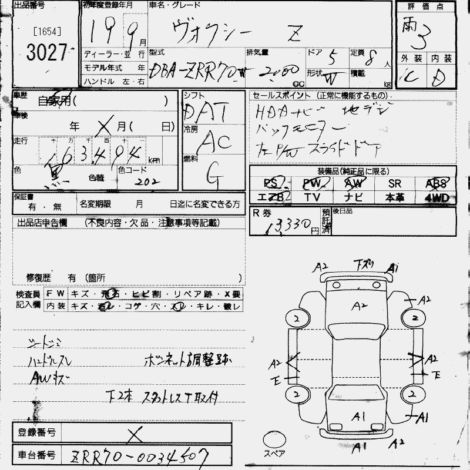 出品番号
[1654]
3027
初年度登録年月
19年9月
車名・グレード
ヴォクシー Z
評価点
雨 3
外装 内装
C D
ディーラー・並行
モデル年式 年
ハンドル 左・右
型式
DBA-ZRR70W
排気量
2000
CC
ドア 5
形状 W
定員 8 人
積載 kg
車歴
自家用( )
車検
年 × 月( 日)
走行
63494 km
色
黒
色替
色コード
202
シフト
DAT
冷房
AC
燃料
G
セールスポイント (正常に機能するもの)
HDDナビ 地デジ
バックモニター
左PWスライドドア
装備品(純正品に限る)
PS PW AW SR ABS
エアB TV ナビ 本革 4WD
保証書
有・無
名変期限 月 日迄に名変できる方
R券
13,330円
預託済
後日品
出品店申告欄 (不良内容・欠品・注意事項等記載)
修復歴 有(箇所 )
検査員記入欄
FW キズ・飛石・ヒビ割・リペア跡・X要
内装 キズ・汚・コゲ・穴・ ・キレ・破レ
ハンドルスレ
ボンネット調整跡
AWキズ
下2本 スタットレス T取付
登録番号
×
車台番号
ZRR70-0034507
下スリ
A2 A1
A2
A2
2 2
A2 A2
E E
2 2
A1
A1 A2
A1
スペア